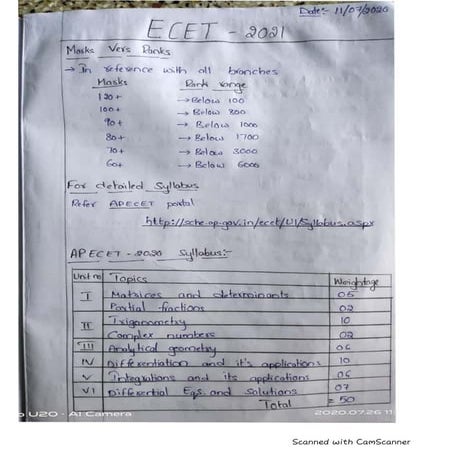 Date:- 11/07/2020
ECET - 2021
Marks Vers Ranks
→ In reference with all branches
Marks Rank range
120+ → Below 100
100+ → Below 300
90+ → Below 1000
80+ → Below 1700
70+ → Below 3000
60+ → Below 6000
For detailed Syllabus
Refer APECET portal
http://sche.ap.gov.in/ecet/UI/Syllabus.aspx
APECET - 2020 Syllabus:-
Unit no Topics Weightage
I Matrices and determinants 05
Partial fractions 02
II Trigonometry 10
Complex numbers 02
III Analytical geometry 06
IV Differentiation and it's applications 10
V Integrations and its applications 06
VI Differential Eqs. and solutions 07
Total = 50
U20 - AI Camera 2020.07.26 11
Scanned with CamScanner